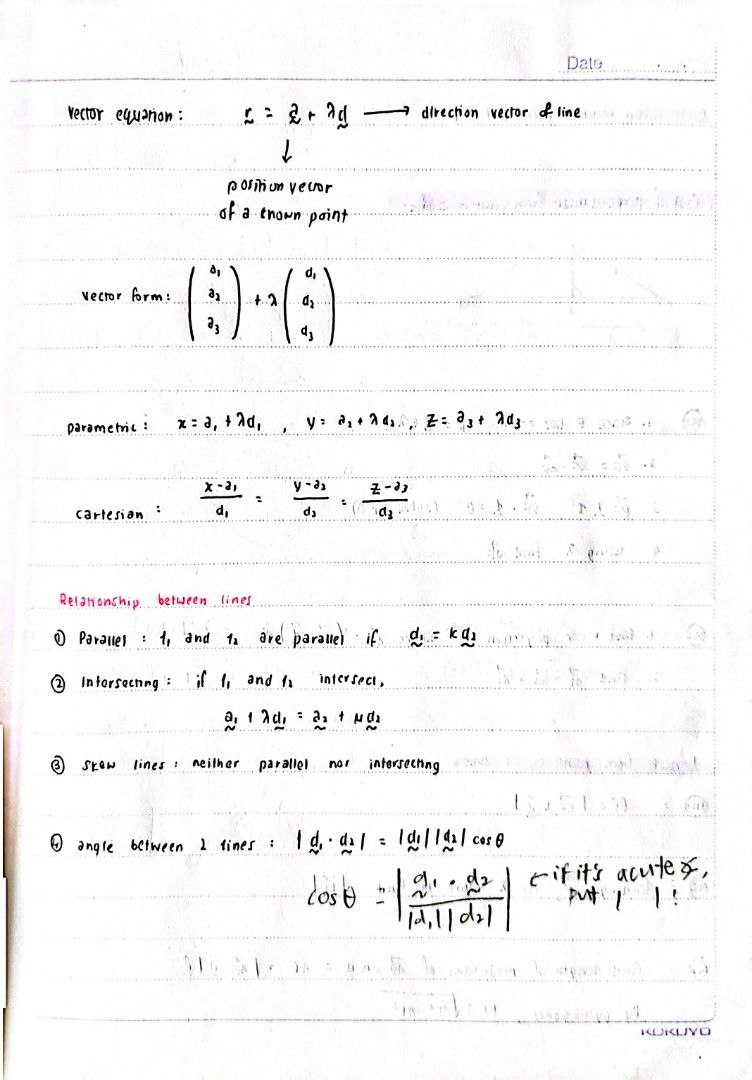 Date
Vector equation : r = a + λd → direction vector of line
↓
position vector
of a known point
Vector form : (a₁ a₂ a₃) + λ (d₁ d₂ d₃)
parametric : x = a₁ + λd₁ , y = a₂ + λd₂ , z = a₃ + λd₃
cartesian : x-a₁/d₁ = y-a₂/d₂ = z-a₃/d₃
Relationship between lines
① Parallel : l₁ and l₂ are parallel if d₁ = k d₂
② Intersecting : if l₁ and l₂ intersect,
a₁ + λd₁ = a₂ + μd₂
③ skew lines : neither parallel nor intersecting
④ angle between 2 lines : |d₁ · d₂| = |d₁||d₂| cos θ
cos θ = |d₁ · d₂ / |d₁||d₂|| ← if it's acute ∡,
put | | !
KOKUYO